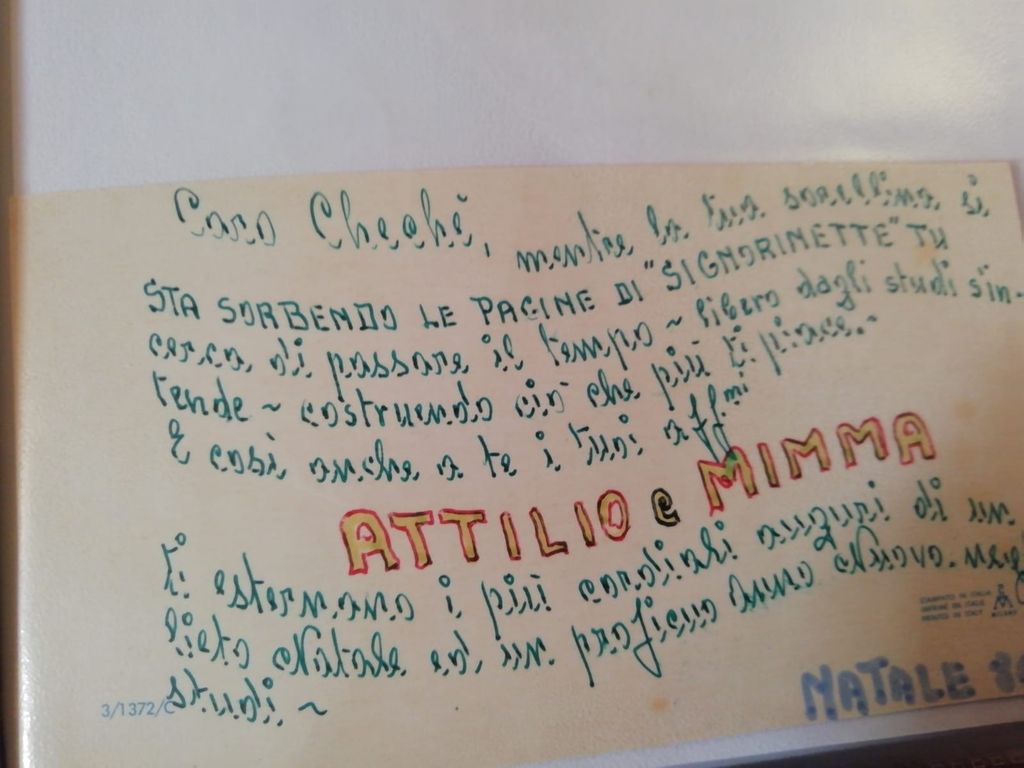 Caro Chechè, mentre la tua sorellina si
STA SORBENDO LE PAGINE DI "SIGNORINETTE" TU
cerca di passare il tempo ~ libero dagli studi s'in-
tende ~ costruendo ciò che più ti piace.~
E così anche a te i tuoi aff.mi
ATTILIO e MIMMA
Ti esternano i più cordiali auguri di un
lieto Natale ed un proficuo Anno Nuovo. negli
studi ~
3/1372/C
NATALE